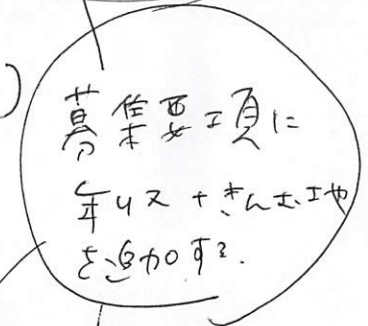 募集要項に
年収+きんむ地
を追加する.